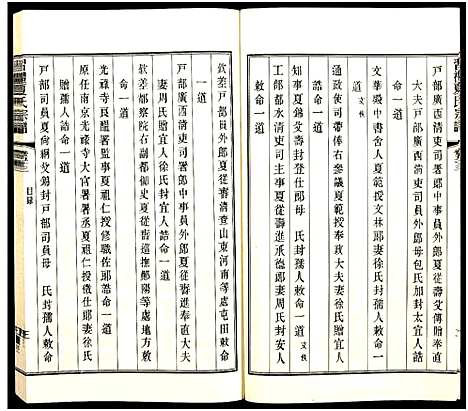 大夫戶部廣西清吏司員外郎母包氏加封太宜人誥
命一道
文華殿中書舍人夏範授文林郎妻徐氏封孺人敕命
一道
通政使司帶俸右參議夏範授奉政大夫妻徐氏贈宜人
誥命一道
事夏錦父壽封登仕郎母 氏封孺人敕命一道 文佚
工部都水清吏司署事夏從壽進承德郎妻周氏封安人
敕命一道
欽差戶部廣西清吏司員外郎夏從壽清查山東河南等處屯田敕命
一道
戶部廣西清吏司員外郎夏從壽進奉直大夫
妻周氏贈宜人誥命一道
欽差都察院右副都御史夏從壽巡撫鄖陽等處地方敕
命一道
光祿寺良醞署監事夏祖仁授修職佐郎誥命一道
原任南京光祿寺大官署署丞夏祖仁授徵仕郎妻徐氏
贈孺人誥命一道
戶部司員夏尚絅父錫封戶部司員母 氏封孺人敕命
目錄